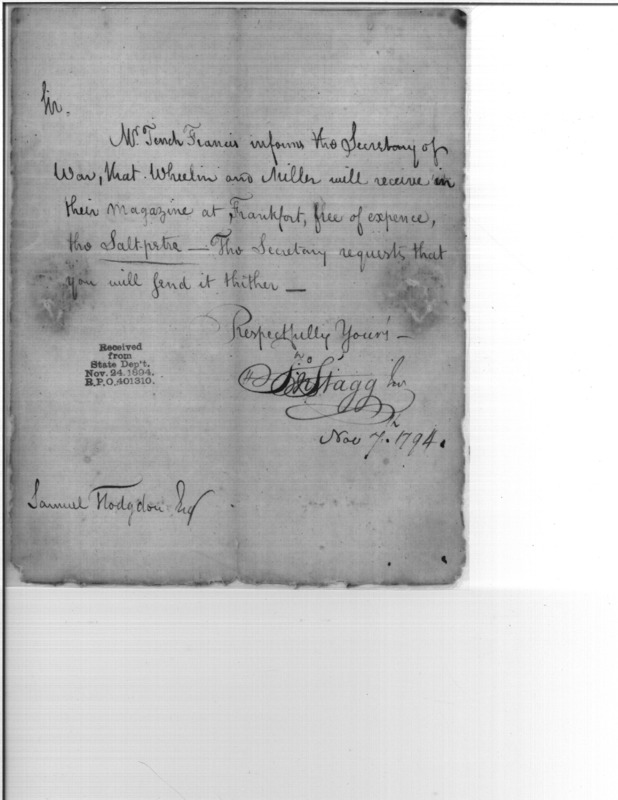 Sir.
Mr. Tench Francis informs the Secretary of
War, that Wheelin and Miller will receive in
their magazine at Frankfort, free of expence,
the Saltpetre — The Secretary requests that
you will send it thither —
Respectfully Yours —
Jno Stagg Jnr
Nov 7th. 1794.
Received
from
State Dep't.
Nov. 24. 1894.
R.P.O. 401310.
Samuel Hodgdon Esq